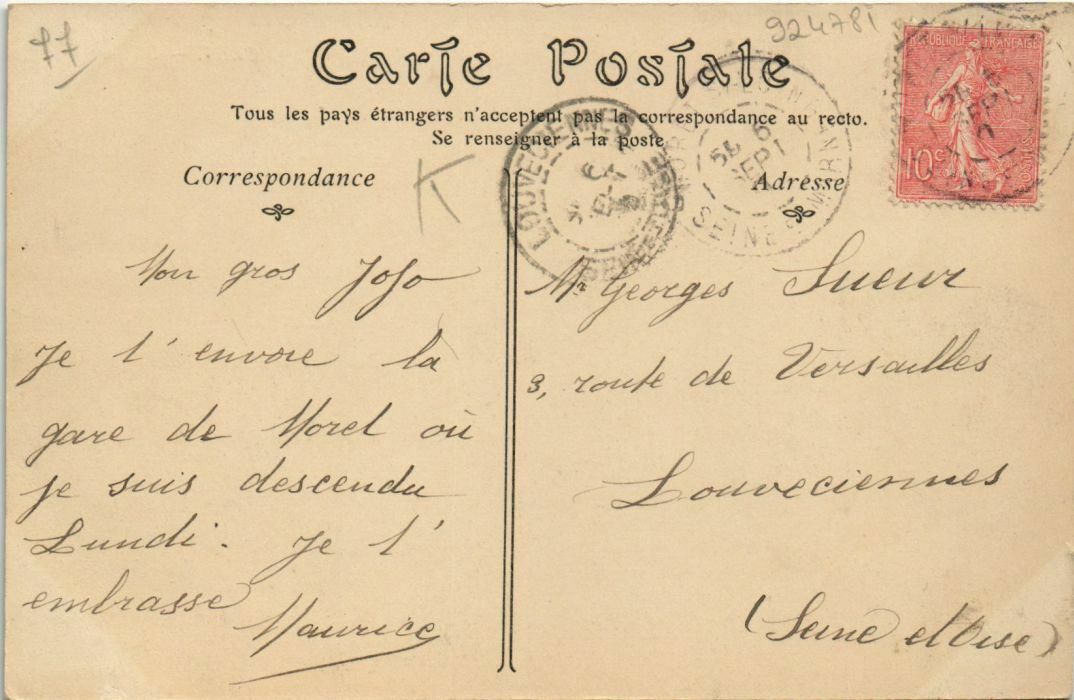 77
924781
Carte Postale
Tous les pays étrangers n'acceptent pas la correspondance au recto.
Se renseigner à la poste
Correspondance
K
Adresse
RÉPUBLIQUE FRANÇAISE
10c
LOUVECIENNES
SEINE-ET-OISE
SEINE ET MARNE
Mon gros Jojo
Je t'envoie la
gare de Moret où
je suis descendu
Lundi. Je t'
embrasse
Maurice
Mr Georges Sueur
3, route de Versailles
Louveciennes
(Seine et Oise)